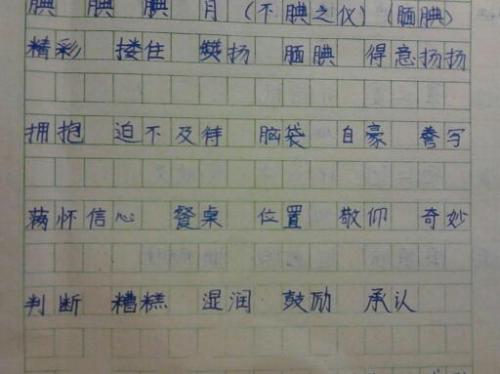 腆 腆 腆 月 (不腆之仪) (腼腆)
精彩 搂住 腼腆 得意扬扬
拥抱 迫不及待 脑袋 自豪 誊写
满怀信心 餐桌 位置 敬仰 奇妙
判断 糟糕 湿润 鼓励 承认